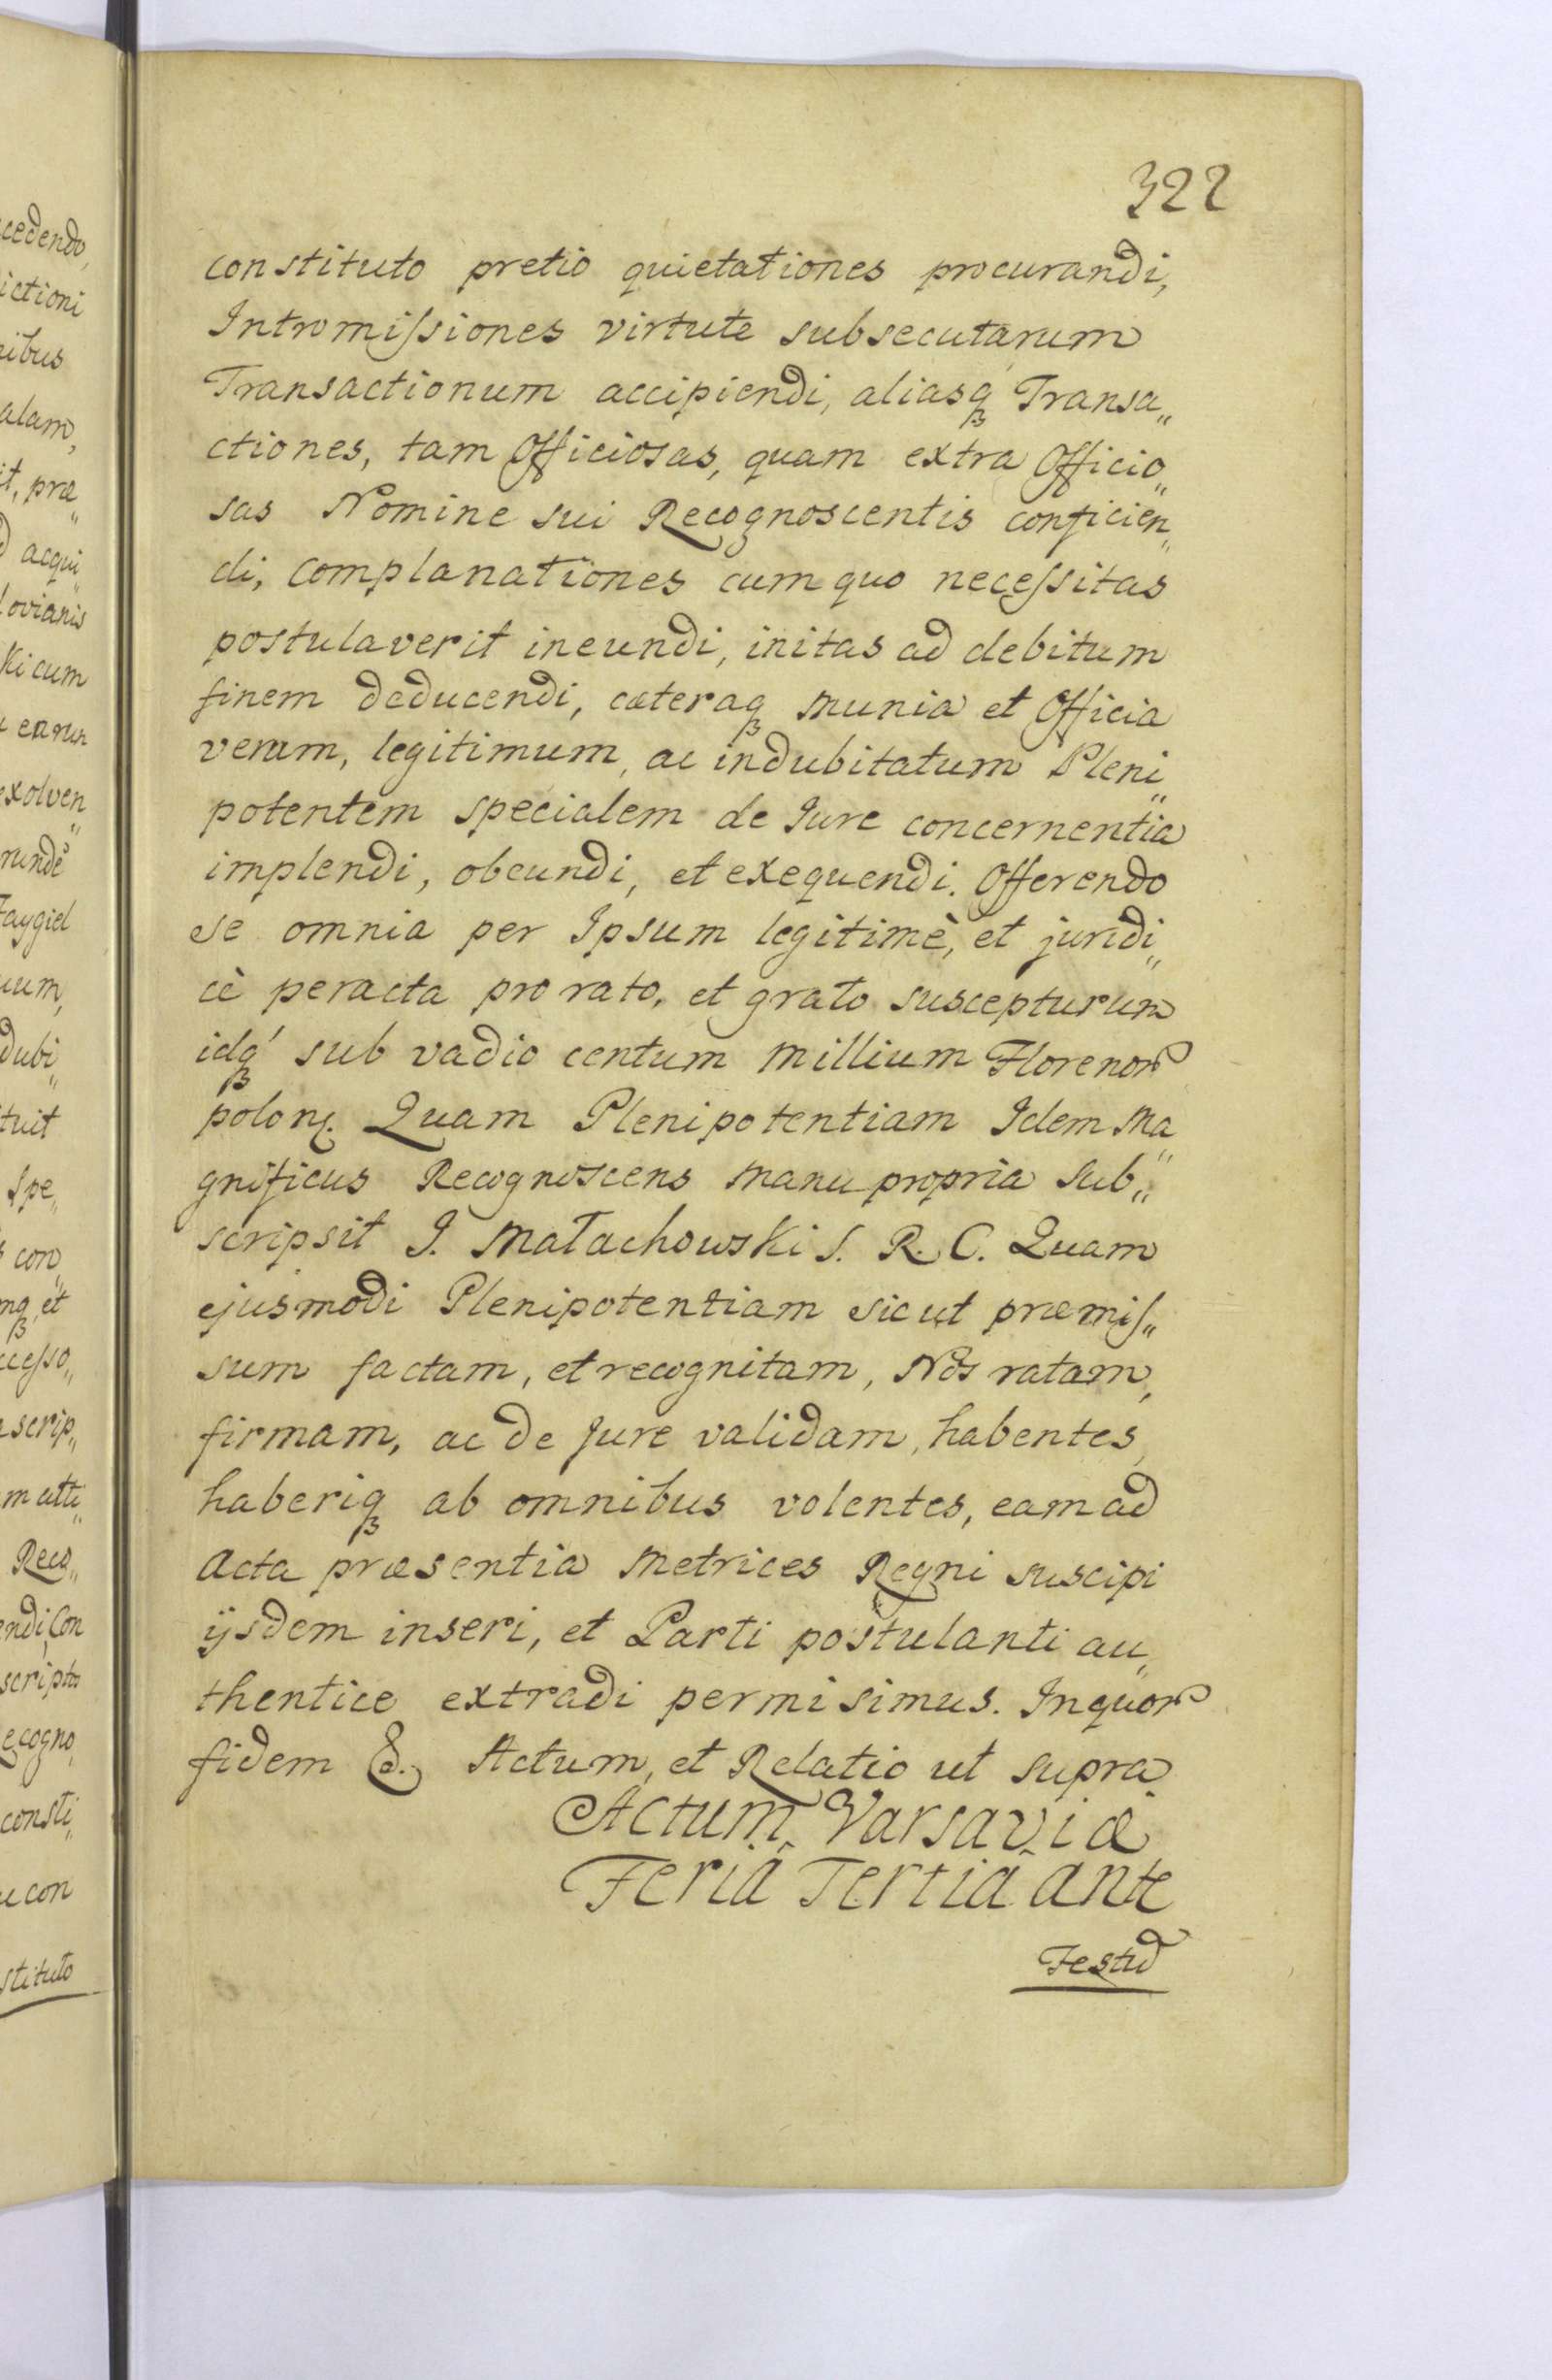 322
constituto pretio quietationes procurandi,
Intromiſsiones virtute subsecutarum
Transactionum accipiendi, aliasq₃ Transa„
ctiones, tam Officiosas, quam extra Officio„
sas Nomine sui Recognoscentis conficien„
di, complanationes cum quo neceſsitas
postulaverit ineundi, initas ad debitum
finem deducendi, cæteraq₃ munia et Officia
verum, legitimum, ac indubitatum Pleni„
potentem specialem de Jure concernentia
implendi, obeundi, et exequendi. Offerendo
se omnia per Ipsum legitimè, et juridi„
cè peracta pro rato, et grato suscepturum
idq₃ sub vadio centum millium Florenor
polon. Quam Plenipotentiam Idem Ma„
gnificus Recognoscens manu propria sub„
scripsit J. Małachowski S. R. C. Quam
ejusmodi Plenipotentiam sicut præmiſ„
sum factam, et recognitam, Nos ratam,
firmam, ac de Jure validam, habentes,
haberiq₃ ab omnibus volentes, eam ad
Acta præsentia Metrices Regni suscipi
ijsdem inseri, et Parti postulanti au„
thentice extradi permisimus. In quor
fidem &. Actum, et Relatio ut supra
Actum Varsaviæ
Feriâ Tertiâ ante
Festu
cedendo,
ictioni
nibus
alam,
it, præ„
d acqui„
lovianis
ki cum
earum
exolven„
runde
Faygiel
uum,
dubi„
tuit
Spe„
con„
mq₃ et
cceſso„
scrip„
m atti„
Reco„
endi, Con
scriptos
ecogno„
consti„
u con
stituto